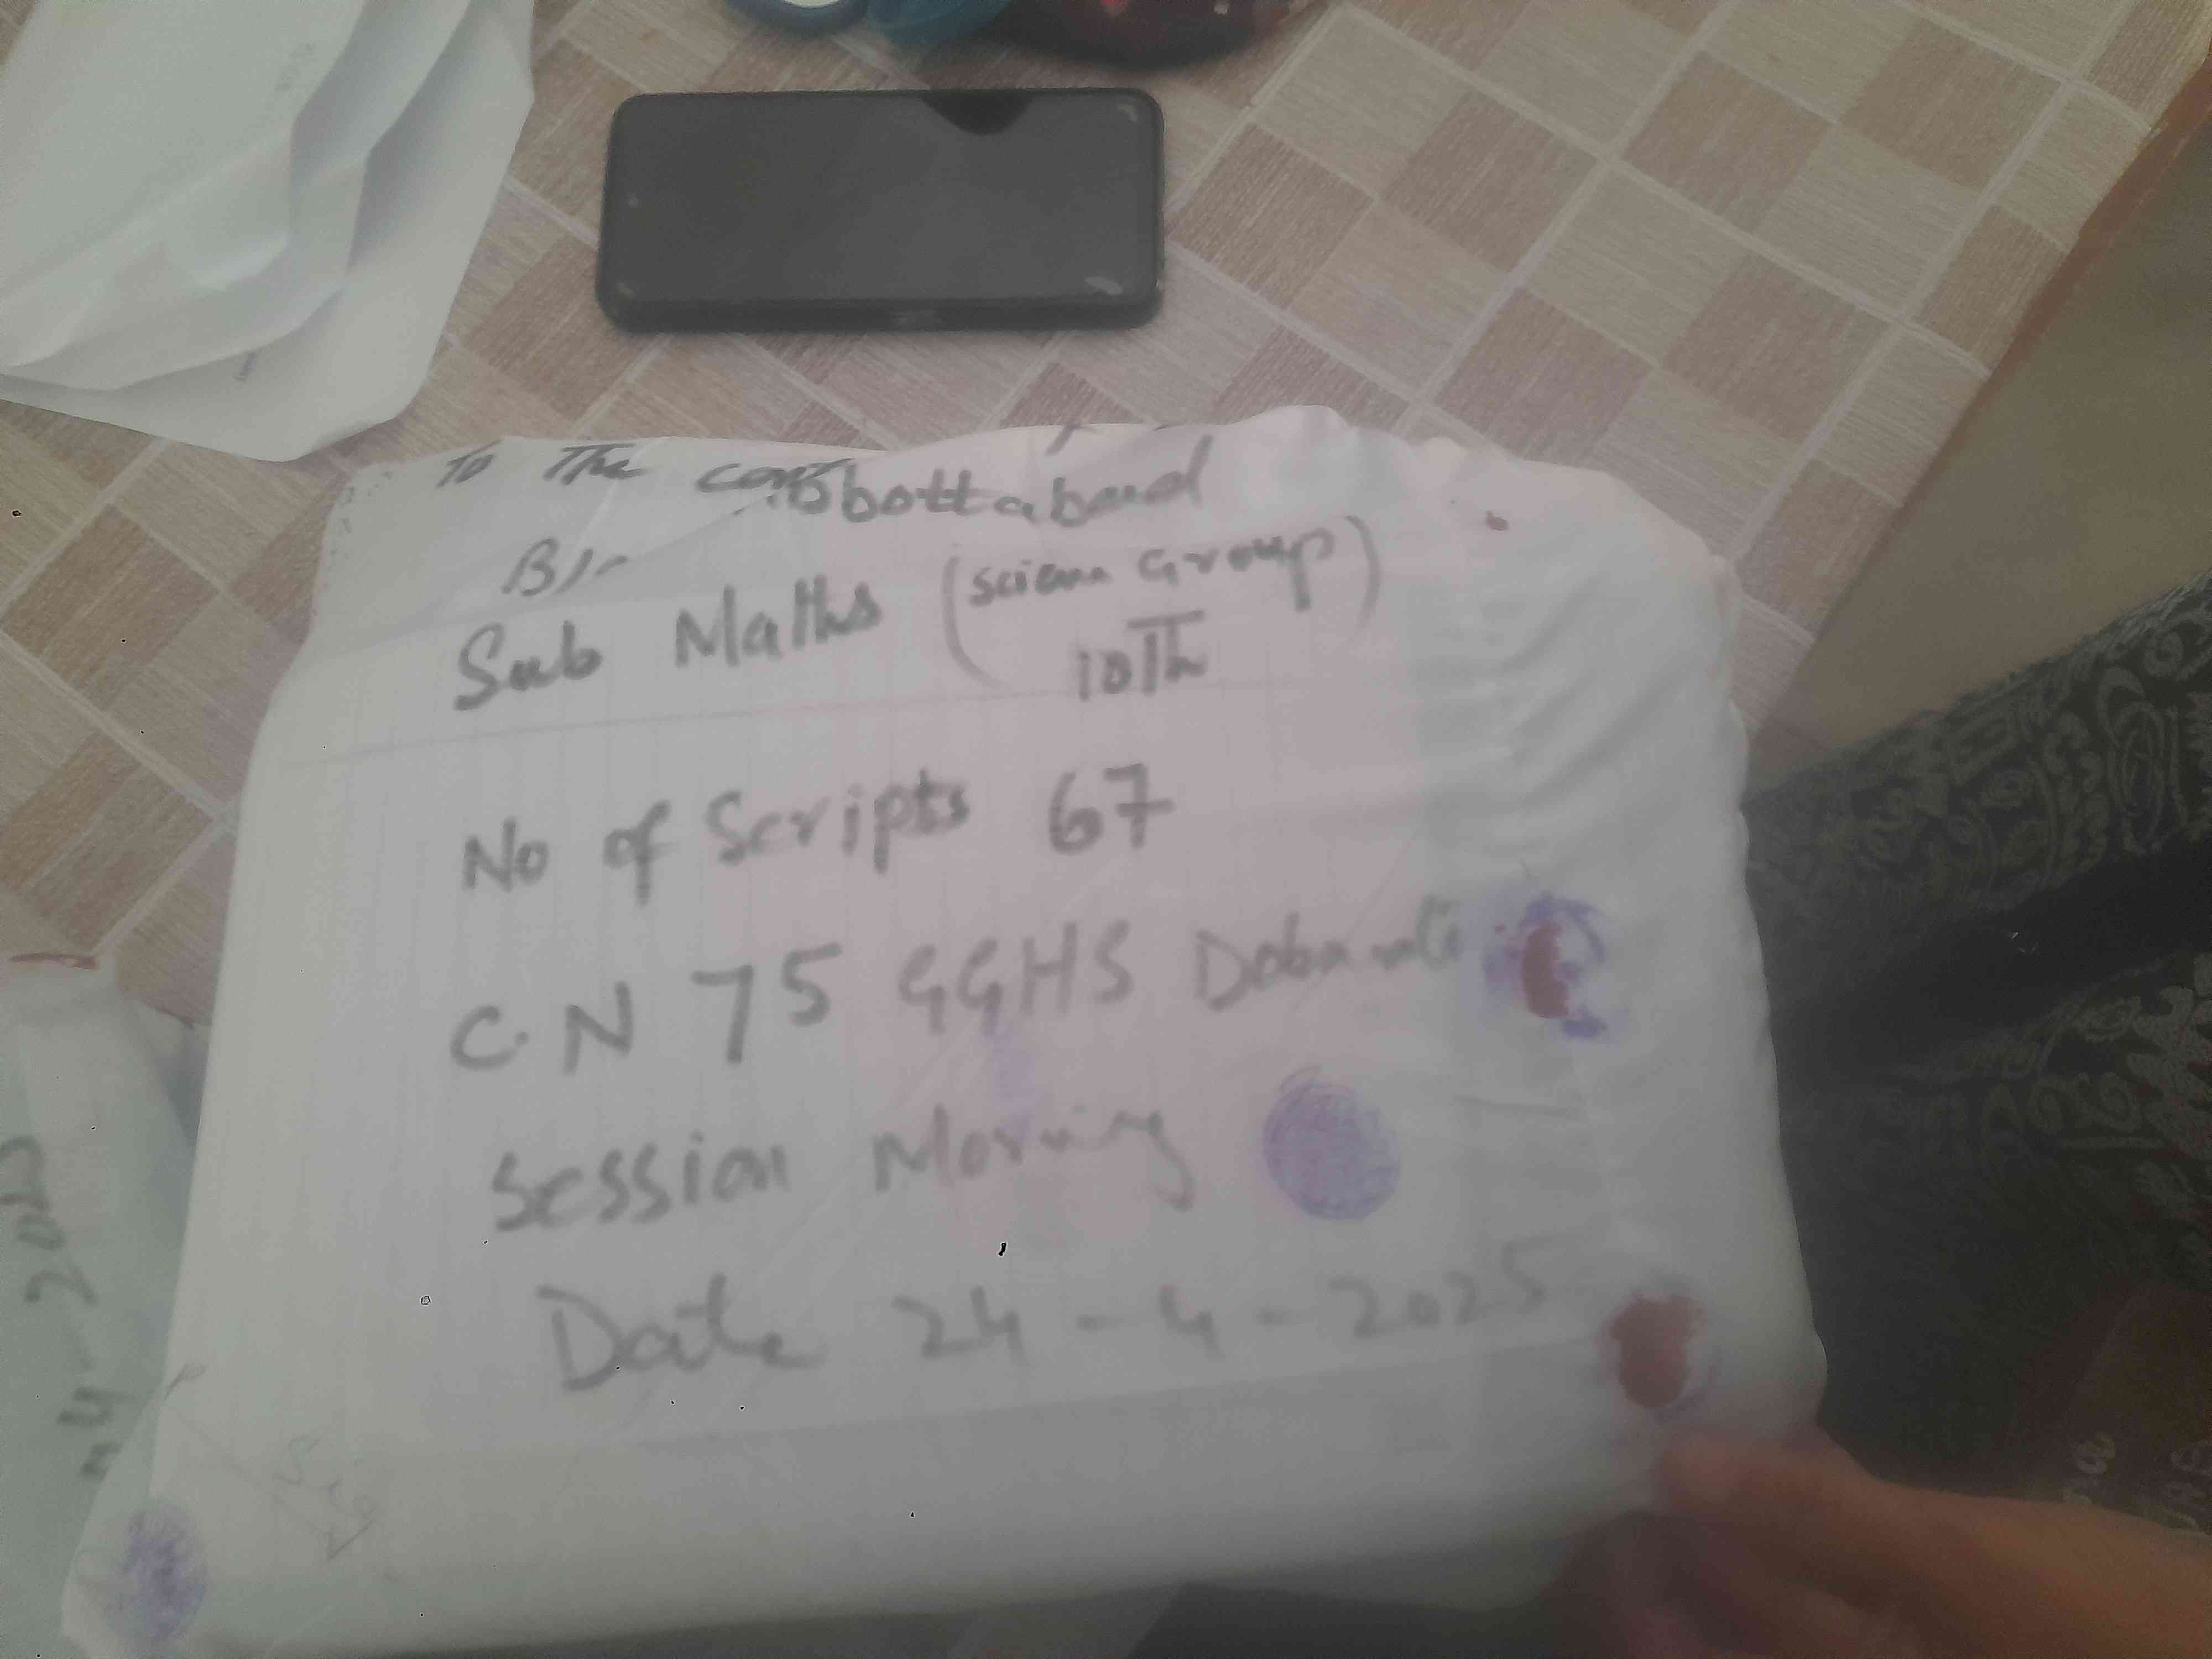 To The
bbottabad
Sub Maths (Science Group)
10Th
No of Scripts 67
C.N 75 GGHS
Session Morning
Date 24-4-2025